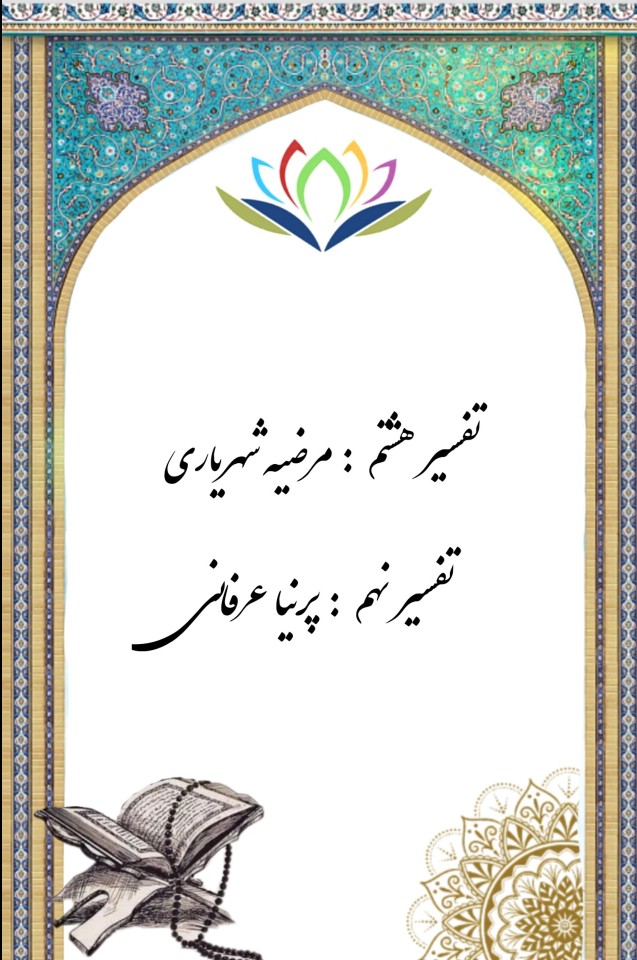 تفسیر هشتم : مرضیه شهریاری
تفسیر نهم : پرنیا عرفانی